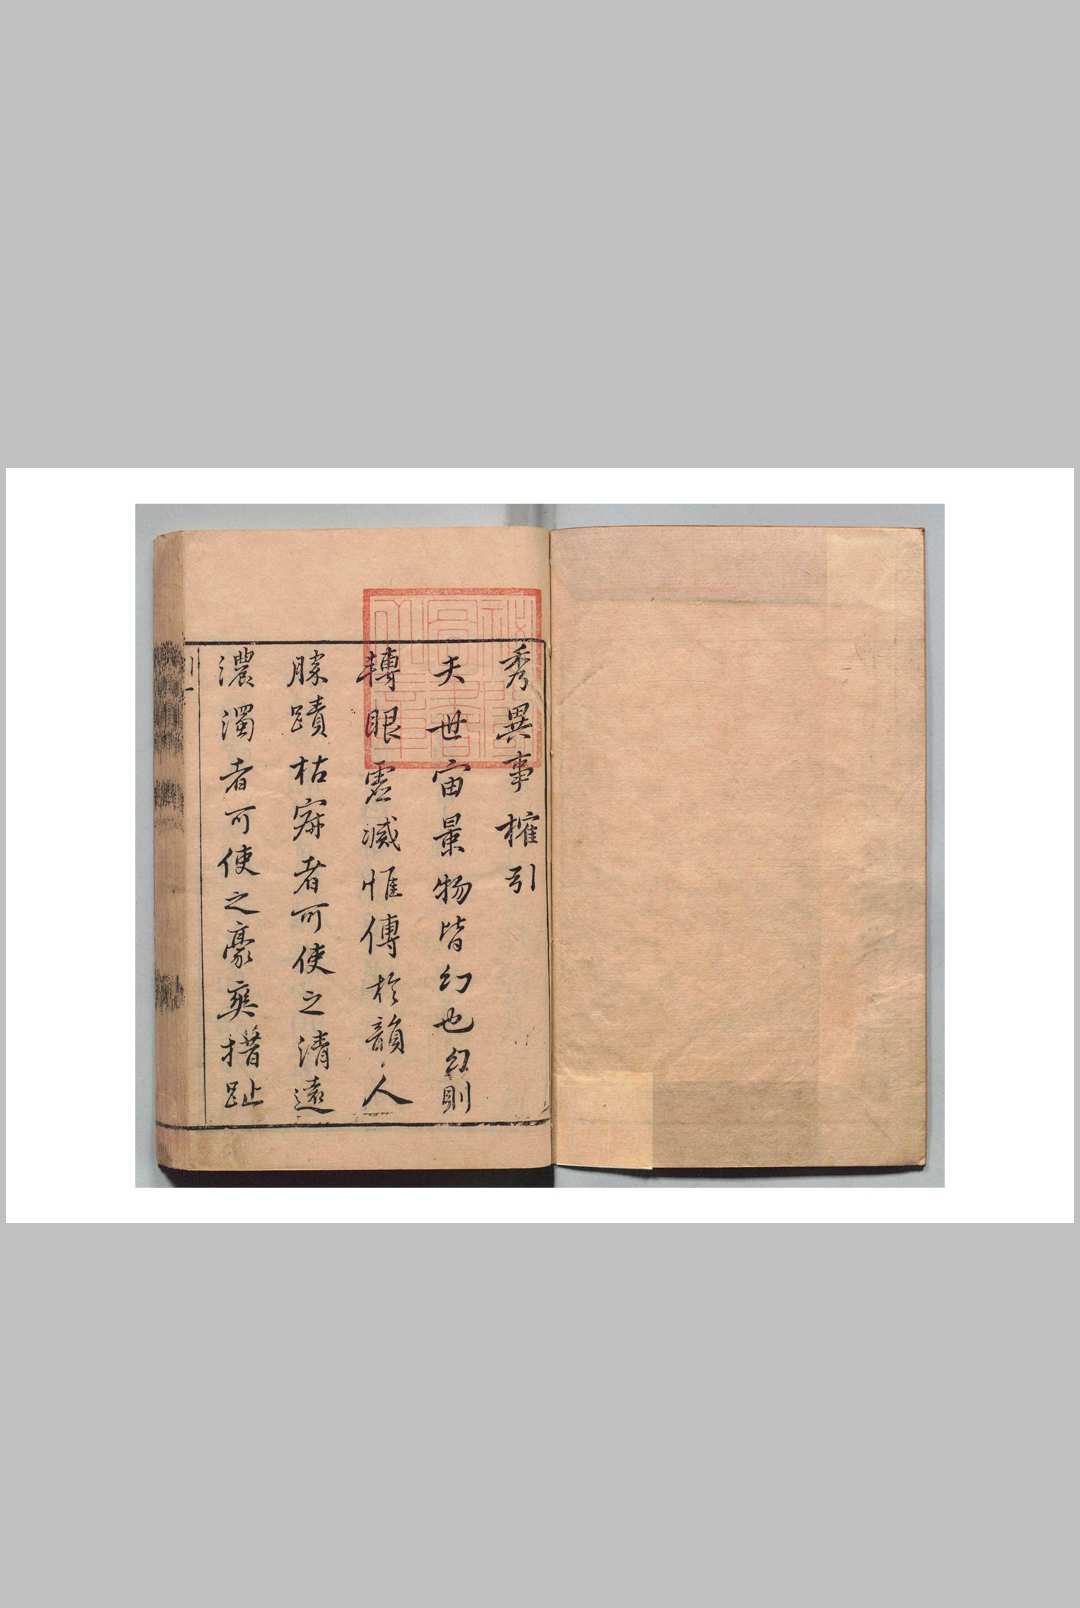 秀異事榷引
夫世宙景物皆幻也幻則
轉眼虛滅惟傳於韻人
勝蹟枯寂者可使之清遠
濃濁者可使之豪爽搢趾
引
一